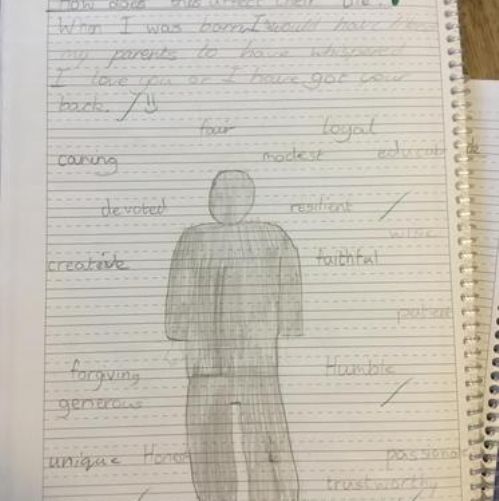 How does this affect their life?
When I was born I would have liked
my parents to have whispered
I love you or I have got your
back.
fair loyal
caring modest
devoted resilient
wise
creative faithful
patient
forgiving Humble
generous
unique passionate
trustworthy